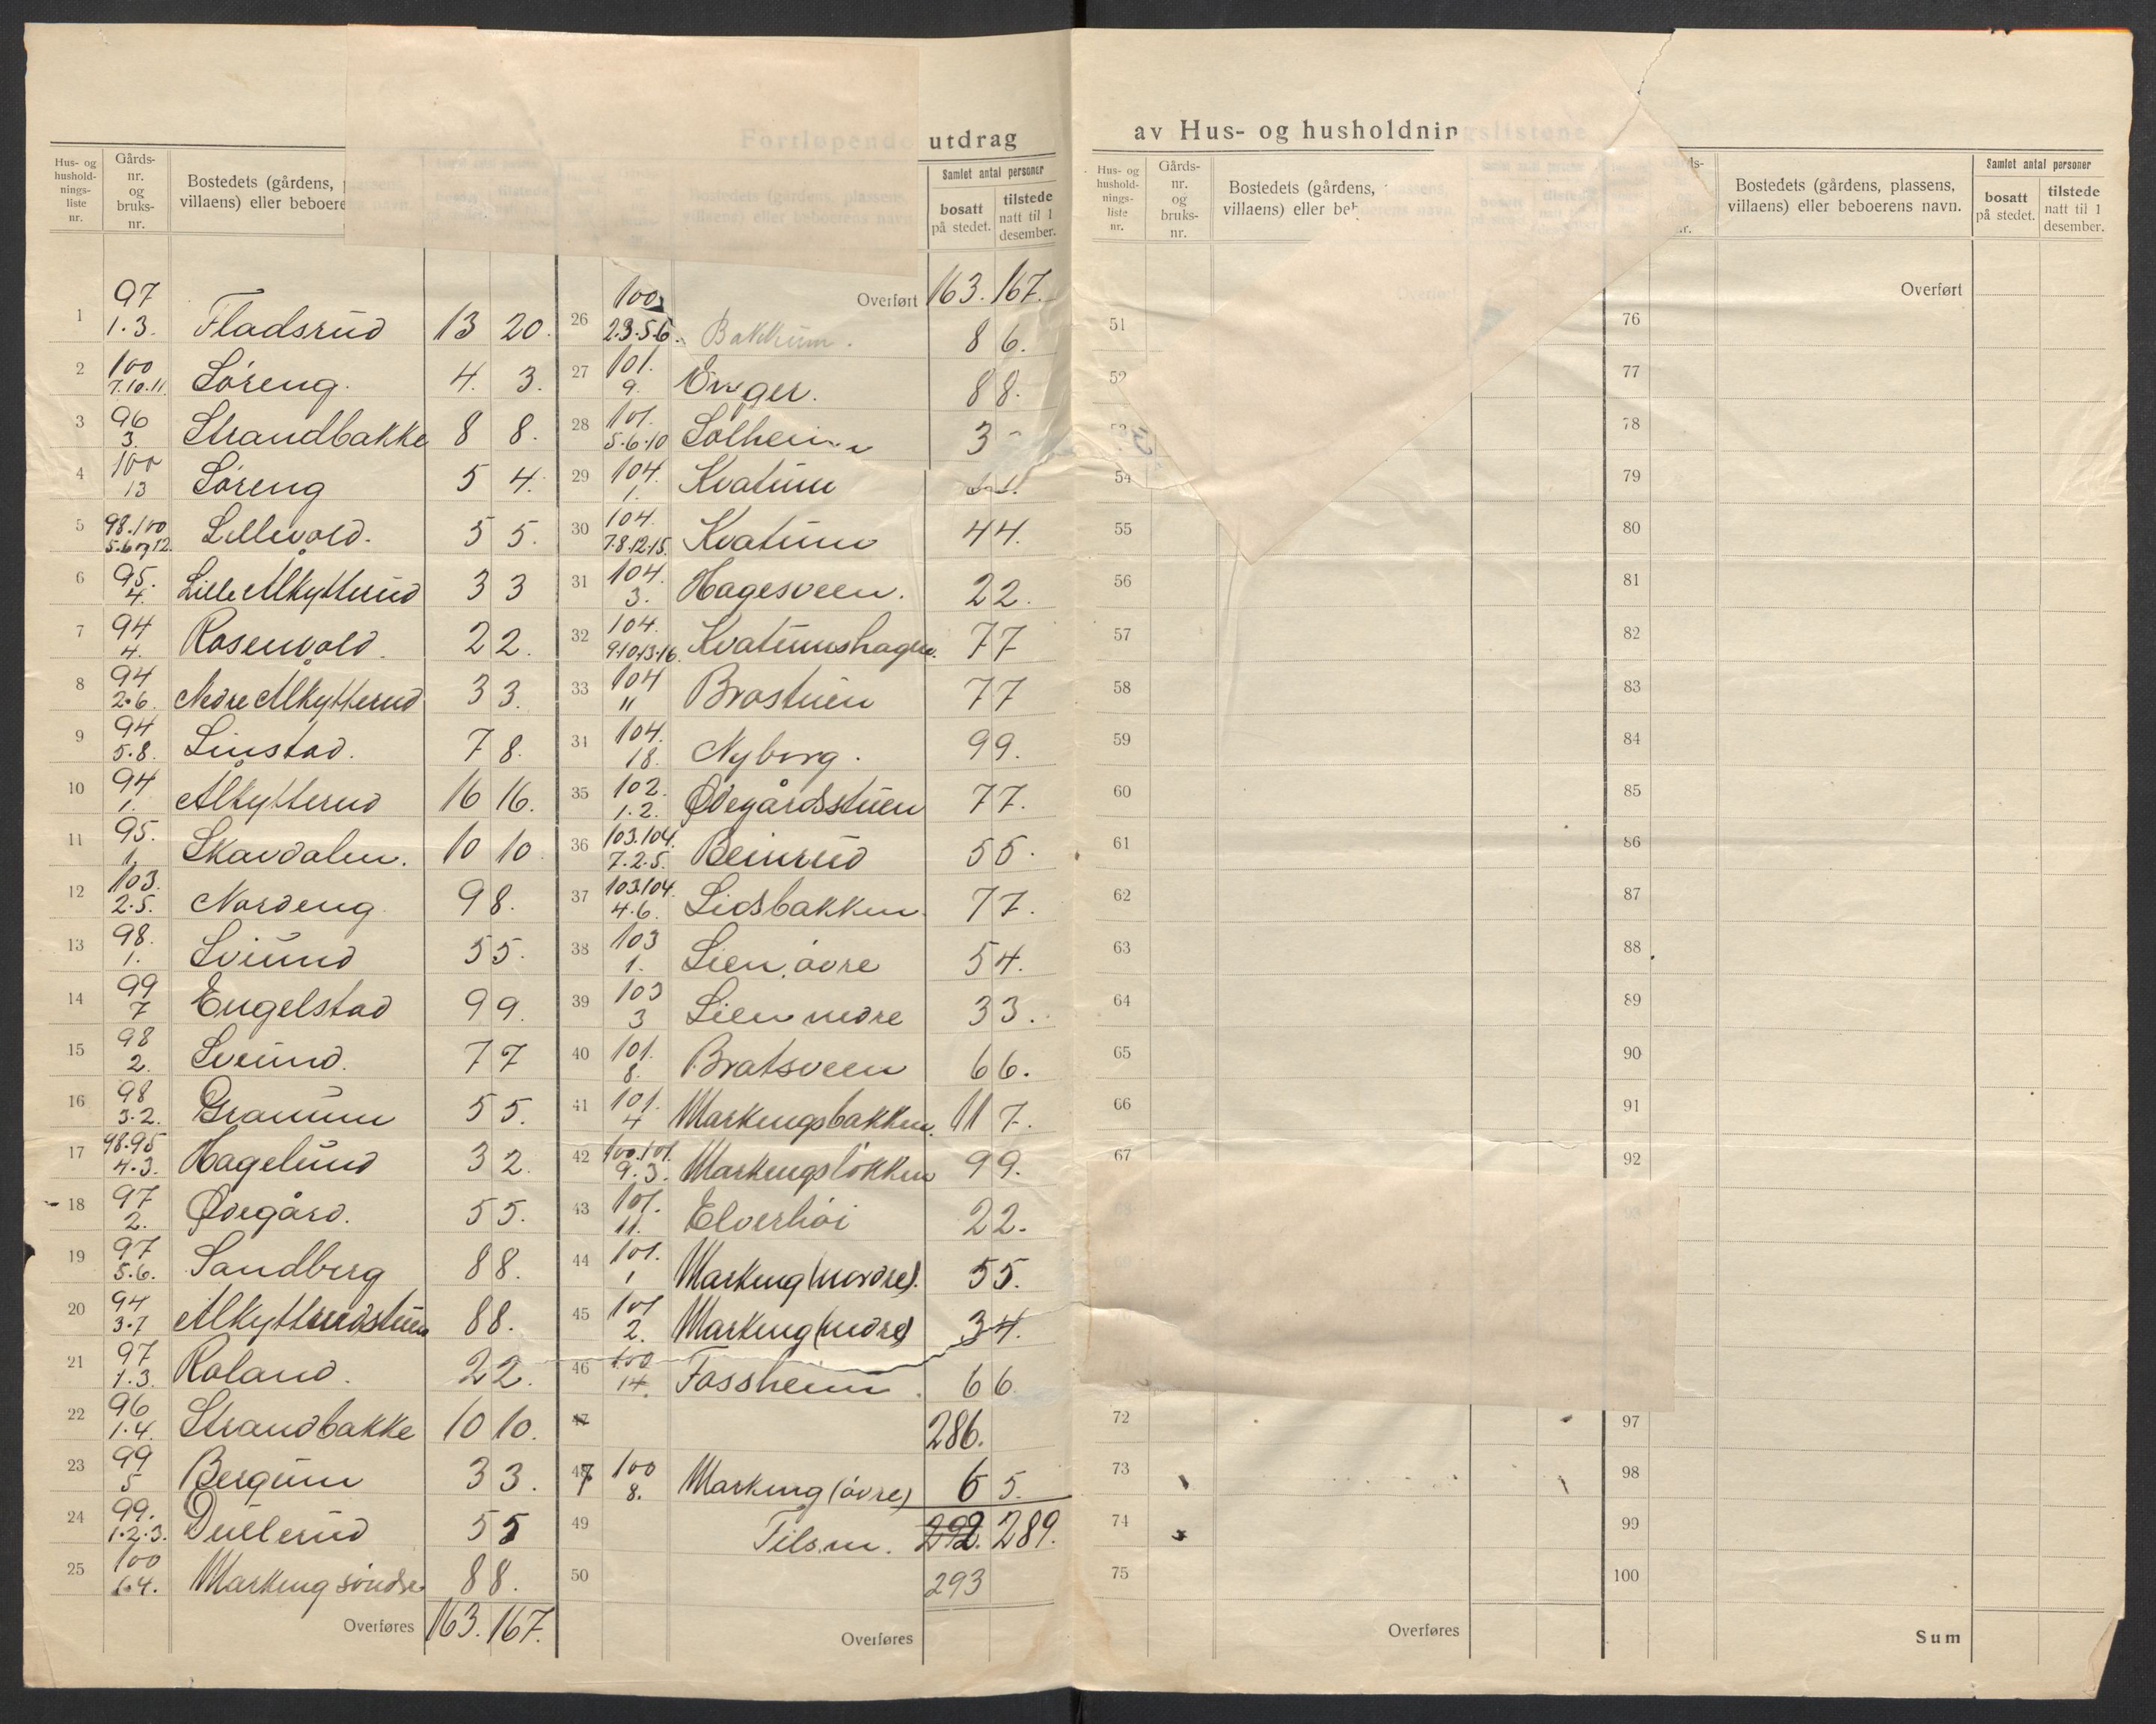 Fortløpende utdrag av Hus- og husholdningslistene
Hus- og husholdnings-liste nr. | Gårds-nr. og bruks-nr. | Bostedets (gårdens, villaens) eller beboere | Samlet antal personer bosatt på stedet. | tilstede natt til 1 desember.
1 | 97 1.3. | Fladsrud | 13 | 20.
2 | 100 7.10.11. | Löreng. | 4. | 3.
3 | 96 3. | Strandbakke | 8 | 8.
4 | 100 13 | Löreng | 5 | 4.
5 | 98.100 5.6 og 12. | Lillevold. | 5 | 5.
6 | 95. 4. | Lille Ålkytterud | 3 | 3
7 | 94 4. | Rosenvold. | 2 | 2.
8 | 94 2.6. | Nedre Ålkytterud | 3 | 3.
9 | 94 5.8. | Linstad. | 7 | 8.
10 | 94 1. | Ålkytterud | 16 | 16.
11 | 95. 1. | Skavdalen. | 10 | 10.
12 | 103. 2.5. | Nordeng | 9 | 8.
13 | 98. 1. | Sviund | 5 | 5.
14 | 99 7 | Engelstad | 9 | 9.
15 | 98 2. | Sviund. | 7 | 7
16 | 98 3.2. | Granum | 5 | 5.
17 | 98.95 4.3. | Hagelund | 3 | 2.
18 | 97 2. | Ødegård. | 5 | 5.
19 | 97 5.6. | Sandberg | 8 | 8.
20 | 94 3.7 | Ålkytterudstuen | 8 | 8.
21 | 97 1.3. | Roland. | 2 | 2.
22 | 96 1.4. | Strandbakke | 10 | 10.
23 | 99 5 | Bergum | 3 | 3.
24 | 99. 1.2.3. | Dullerud | 5 | 5
25 | 100 1.4. | Markeng söndre | 8 | 8.
Overføres | 163. | 167.
Samlet antal personer bosatt på stedet. | tilstede natt til 1 desember.
Overført | 163. | 167.
26 | 100 2.3.5.6. | Bakkum. | 8 | 6.
27 | 101. 9. | Enger. | 8 | 8.
28 | 101. 5.6.10 | Solheim | 3 | -
29 | 104. 1. | Kvatum
30 | 104. 7.8.12.15. | Kvatum | 4 | 4.
31 | 104. 3. | Hagesveen. | 2 | 2.
32 | 104. 9.10.13.16. | Kvatumshagen. | 7 | 7
33 | 104 11 | Brostuen | 7 | 7
34 | 104. 18. | Nyborg. | 9 | 9.
35 | 102. 1.2. | Ødegårdsstuen | 7 | 7.
36 | 103.104. 7.2.5. | Beinrud | 5 | 5.
37 | 103.104. 4.6. | Lidsbakken. | 7 | 7.
38 | 103 1. | Lien, övre | 5 | 4.
39 | 103 3 | Lien nedre | 3 | 3.
40 | 101. 8. | Bratsveen | 6 | 6.
41 | 101. 4 | Markengsbakken. | 11 | 7.
42 | 100.101. 9.3. | Markengslökken | 9 | 9.
43 | 101. 11. | Elverhöi | 2 | 2.
44 | 101. 1 | Markeng (nordre). | 5 | 5.
45 | 101 2. | Markeng (nedre) | 3 | 4.
46 | 100 14. | Fossheim. | 6 | 6
47 | 286.
48 7 | 100 8. | Markeng (övre) | 6 | 5.
49 | Tils.m. | 292. | 289.
50 | 293
Overføres
Hus- og husholdnings-liste nr. | Gårds-nr. og bruks-nr. | Bostedets (gårdens, villaens) eller beb
51
52
53
54
55
56
57
58
59
60
61
62
63
64
65
66
67
72
73
74
75
Overføres
Bostedets (gårdens, plassens, villaens) eller beboerens navn. | Samlet antal personer bosatt på stedet. | tilstede natt til 1 desember.
Overført
76
77
78
79
80
81
82
83
84
85
86
87
88
89
90
91
92
93
97
98
99
100
Sum